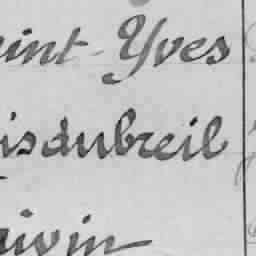 int-Yves
isdubreil
ivin